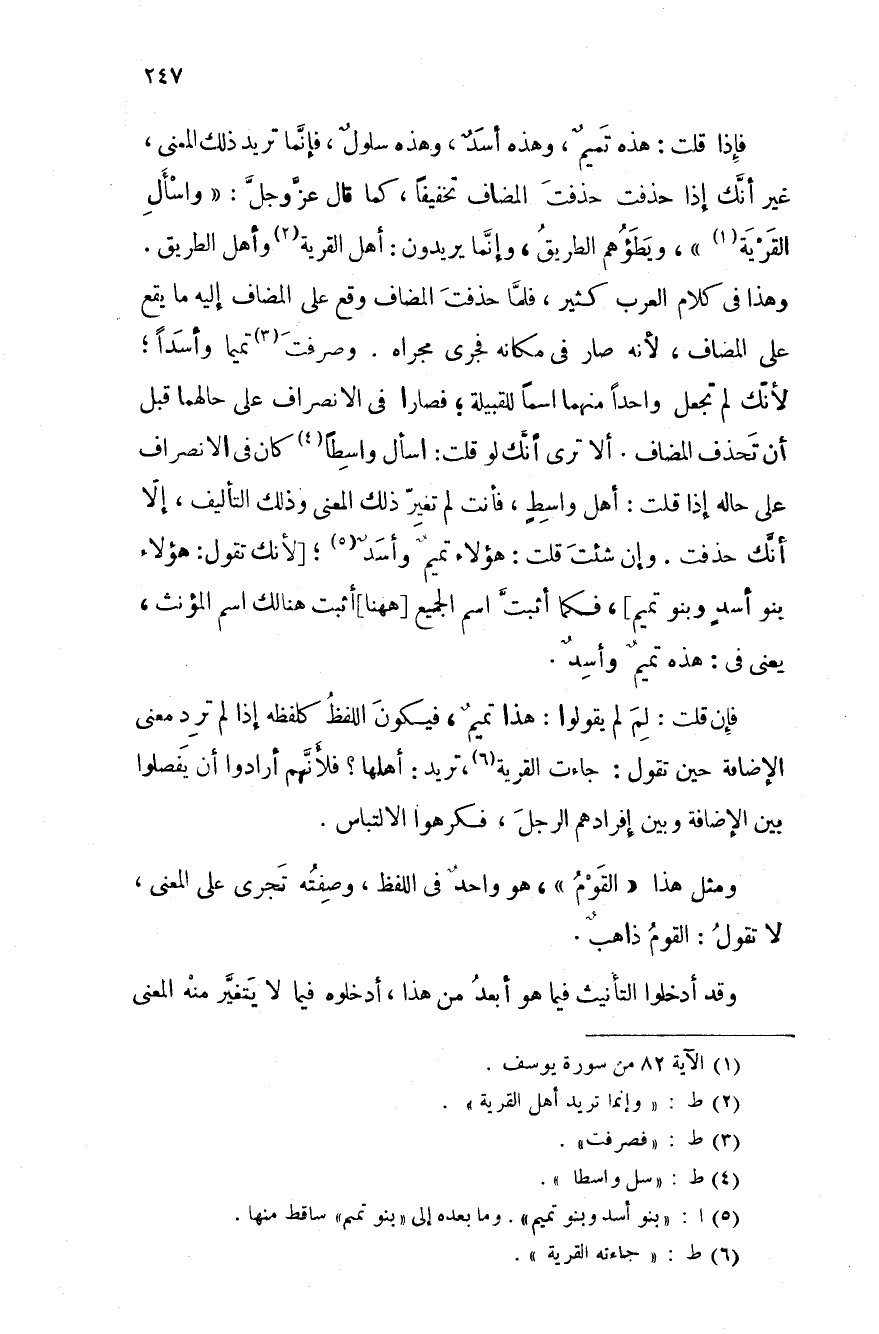 ٢٤٧
فإِذا قلت : هذه تَميمٌ ، وهذه أسَدٌ ، وهذه سلولٌ ، فإنَّما تريد ذلك المعنى ،
غير أنَّك إذا حذفت حذفتَ المضاف تخفيفاً ، كما قال عزَّ وجلَّ : « واسْأَلِ
القَرْيَة (١) » ، ويَطَؤُهم الطريقُ ، وإنَّما يريدون : أهل القرية (٢) وأهل الطريق .
وهذا فى كلام العرب كثير ، فلمَّا حذفتَ المضاف وقع على المضاف إليه ما يقع
على المضاف ، لأنه صار فى مكانه فجرى مجراه . وصرفتَ (٣) تميما وأسَداً ؛
لأنّك لم تجعل واحداً منهما اسماً للقبيلة ؛ فصارا فى الانصراف على حالهما قبل
أن تَحذف المضاف . ألا ترى أنَّك لو قلت : اسأل واسِطاً (٤) كان فى الانصراف
على حاله إذا قلت : أهل واسِطٍ ، فأنت لم تغيِرّ ذلك المعنى وذلك التأليف ، إلّا
أنَّك حذفت . وإن شئتَ قلت : هؤلاء تميمٌ وأسَدٌ (٥) ؛ [لأنك تقول : هؤلاء
بنو أسدٍ وبنو تميم] ، فـكما أثبتَّ اسم الجميع [ههنا] أثبت هنالك اسم المؤنث ،
يعنى فى : هذه تميمٌ وأسِدٌ .
فإن قلت : لِمَ لم يقولوا : هذا تميمٌ ، فيـكونَ اللفظُ كلفظه إذا لم ترِد معنى
الإضافة حين تقول : جاءت القرية (٦) ، تريد : أهلها ؟ فلأَنَّهم أرادوا أن يَفصلوا
بين الإضافة وبين إفرادهم الرجلَ ، فـكرهوا الالتباس .
ومثل هذا « القَوْمُ » ، هو واحدٌ فى اللفظ ، وصِفتُه تَجرى على المعنى ،
لا تقولُ : القومُ ذاهبٌ .
وقد أدخلوا التأنيث فيما هو أبعدُ من هذا ، أدخلوه فيما لا يَتغيَّر منْه المعنى
(١) الآية ٨٢ من سورة يوسف .
(٢) ط : « وإنما تريد أهل القرية » .
(٣) ط : «فصرفت» .
(٤) ط : «سل واسطا » .
(٥) ا : «بنو أسد وبنو تميم» . وما بعده إلى «بنو تمم» ساقط منها .
(٦) ط : « جاءته القرية » .